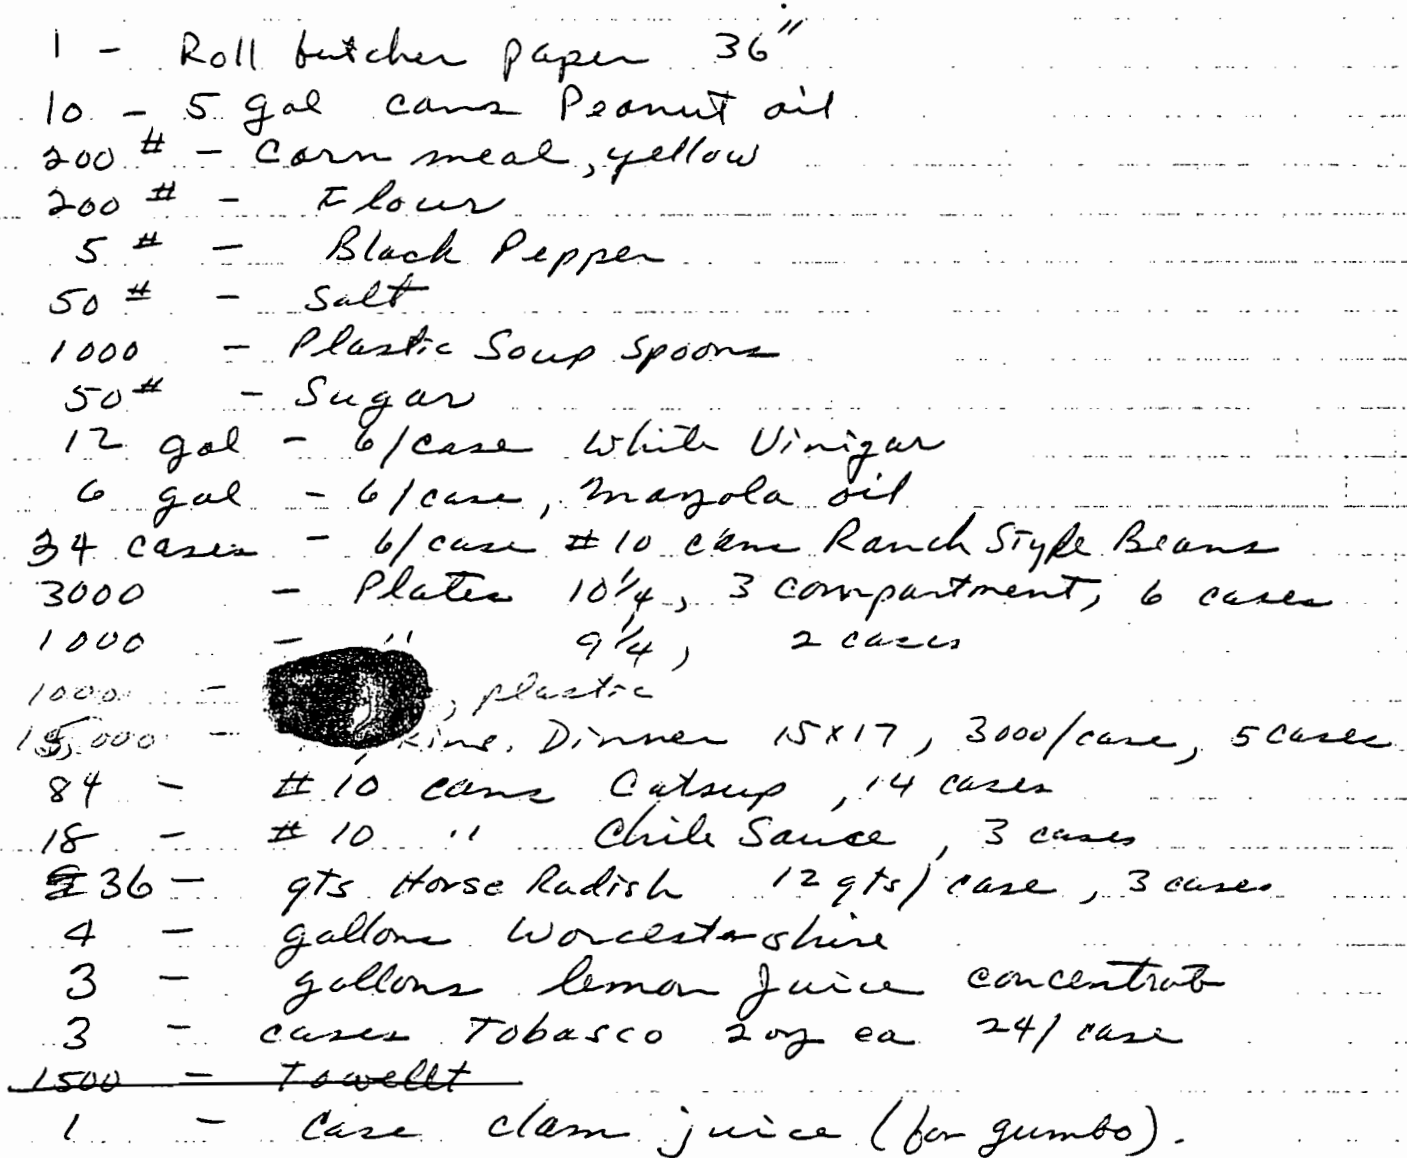 1 - Roll butcher paper 36"
10 - 5 gal cans Peanut oil
200 # - Corn meal, yellow
200 # - Flour
5 # - Black Pepper
50 # - Salt
1000 - Plastic Soup Spoons
50 # - Sugar
12 gal - 6/case White Vinigar
6 gal - 6/case, Mazola oil
34 cases - 6/case #10 cans Ranch Style Beans
3000 - Plates 10 1/4, 3 compartment, 6 cases
1000 - " 9 1/4, 2 cases
1000 - , plastic
15,000 - kins, Dinner 15x17, 3000/case, 5 cases
84 - #10 cans Catsup, 14 cases
18 - #10 " Chile Sauce, 3 cases
36 - qts Horse Radish 12 qts/case, 3 cases
4 - gallons Worcestershire
3 - gallons lemon juice concentrate
3 - cases Tobasco 2oz ea 24/case
1500 - Towellt
1 - case clam juice (for gumbo).